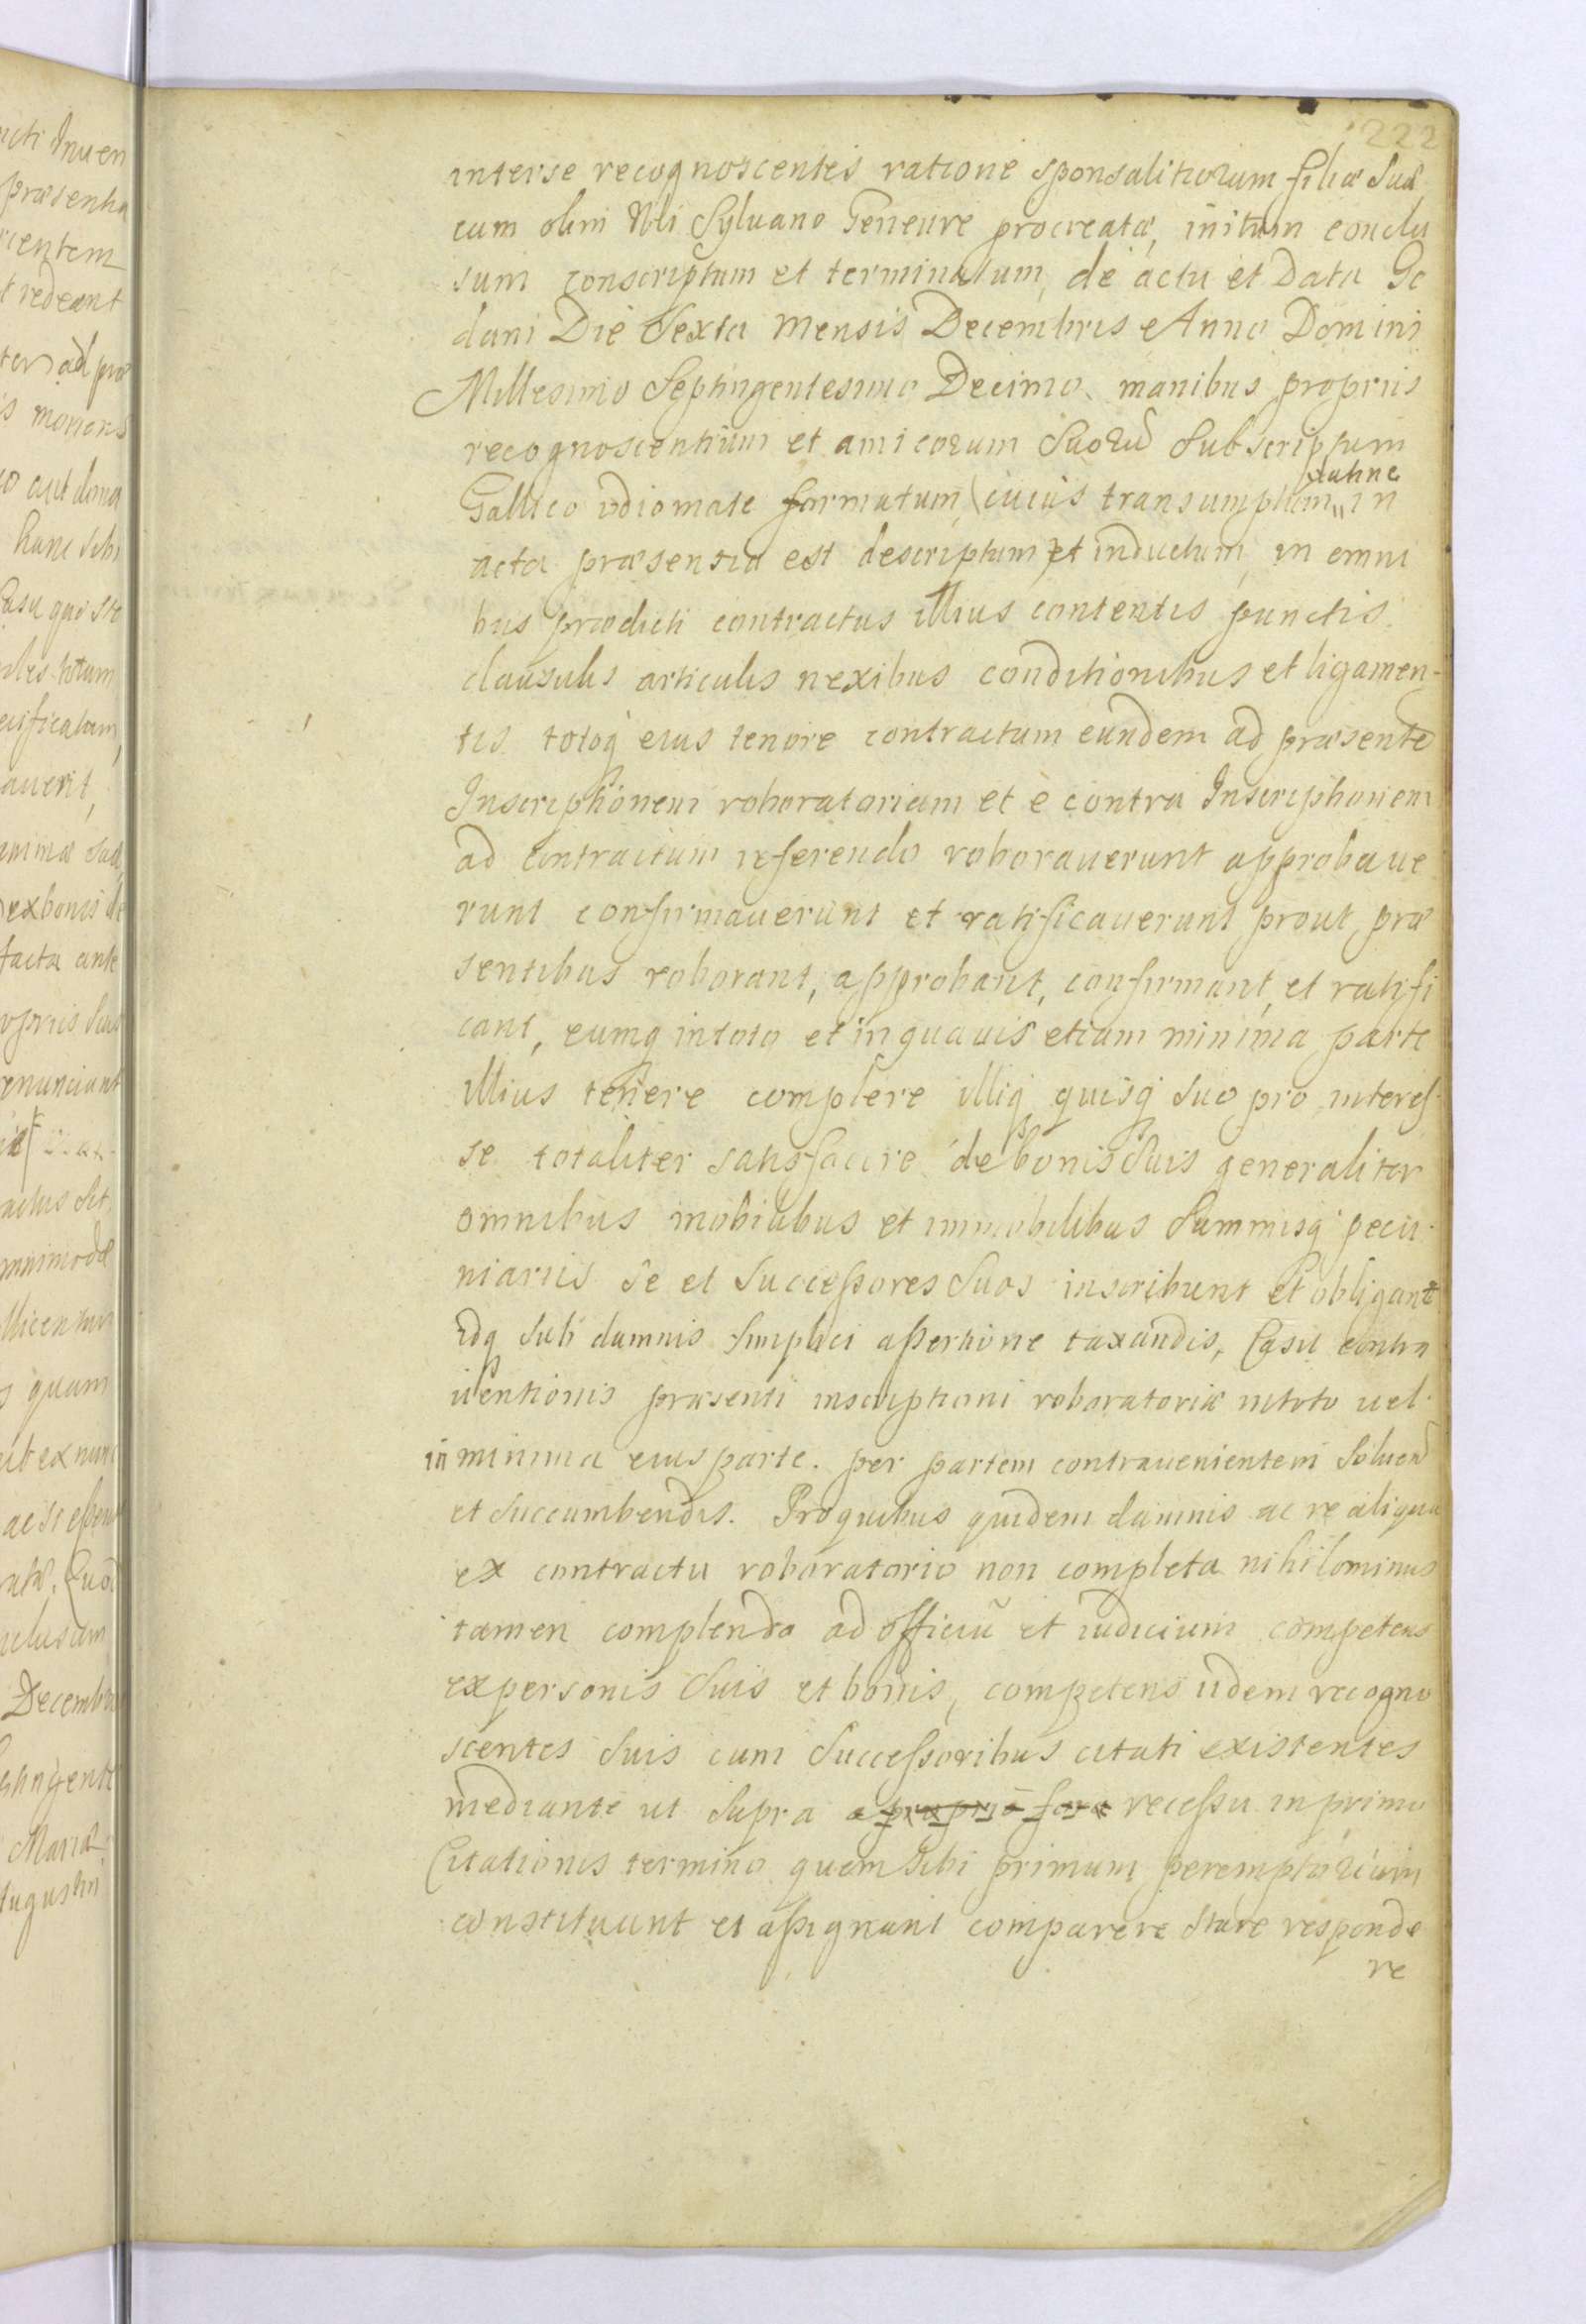 222
interse recognoscentes ratione sponsalitiorum filiæ Suæ
cum olim Nbli Sylvano Geneure procreatæ, initum conclu
sum conscriptum et terminatum, de actu et Data Ge
dani Die Sexta Mensis Decembris Anno Domini
Millesimo Septingentesimo Decimo manibus propriis
recognoscentium et amicorum Suorū Subscriptum
Gallico idiomate formatum, (cuius transumptum in
acta præsentia est descriptum et inductum, in omni
bus prædicti contractus illius contentis punctis
clausulis articulis nexibus conditionibus et ligamen-
tis totoq eius tenore contractum eundem ad præsente
Inscriptionem roboratoriam et è contra Inscriptionem
ad contractum referendo roborauerunt approbaue
runt confirmauerunt et ratificauerunt prout præ
sentibus roborant, approbant, confirmant, et ratifi
cant, eumq in toto et in quauis etiam minima parte
illius tenere complere illiq quisq Suo pro interes-
se totaliter satisfacere de bonis Suis generaliter
omnibus mobilibus et immobilibus Summisq pecu-
niariis Se et Successores Suos inscribunt et obligant
idq Sub damnis Simplici assertione taxandis, Casu contra
uentionis præsenti inscriptioni roboratoriæ in toto uel
in minima eius parte. per partem contrauenientem Soluend
et Succumbendis. Pro quibus quidem damnis ac re aliqua
ex contractu roboratorio non completa nihilominus
tamen complenda ad officiū et iudicium competens
ex personis Suis et bonis, competens iidem recogno
scentes Suis cum Successoribus citati existentes
mediante ut Supra a proprio foro recessu in primo
Citationis termino quem Sibi primum peremptorium
constituunt et assignant comparere Stare responde
re